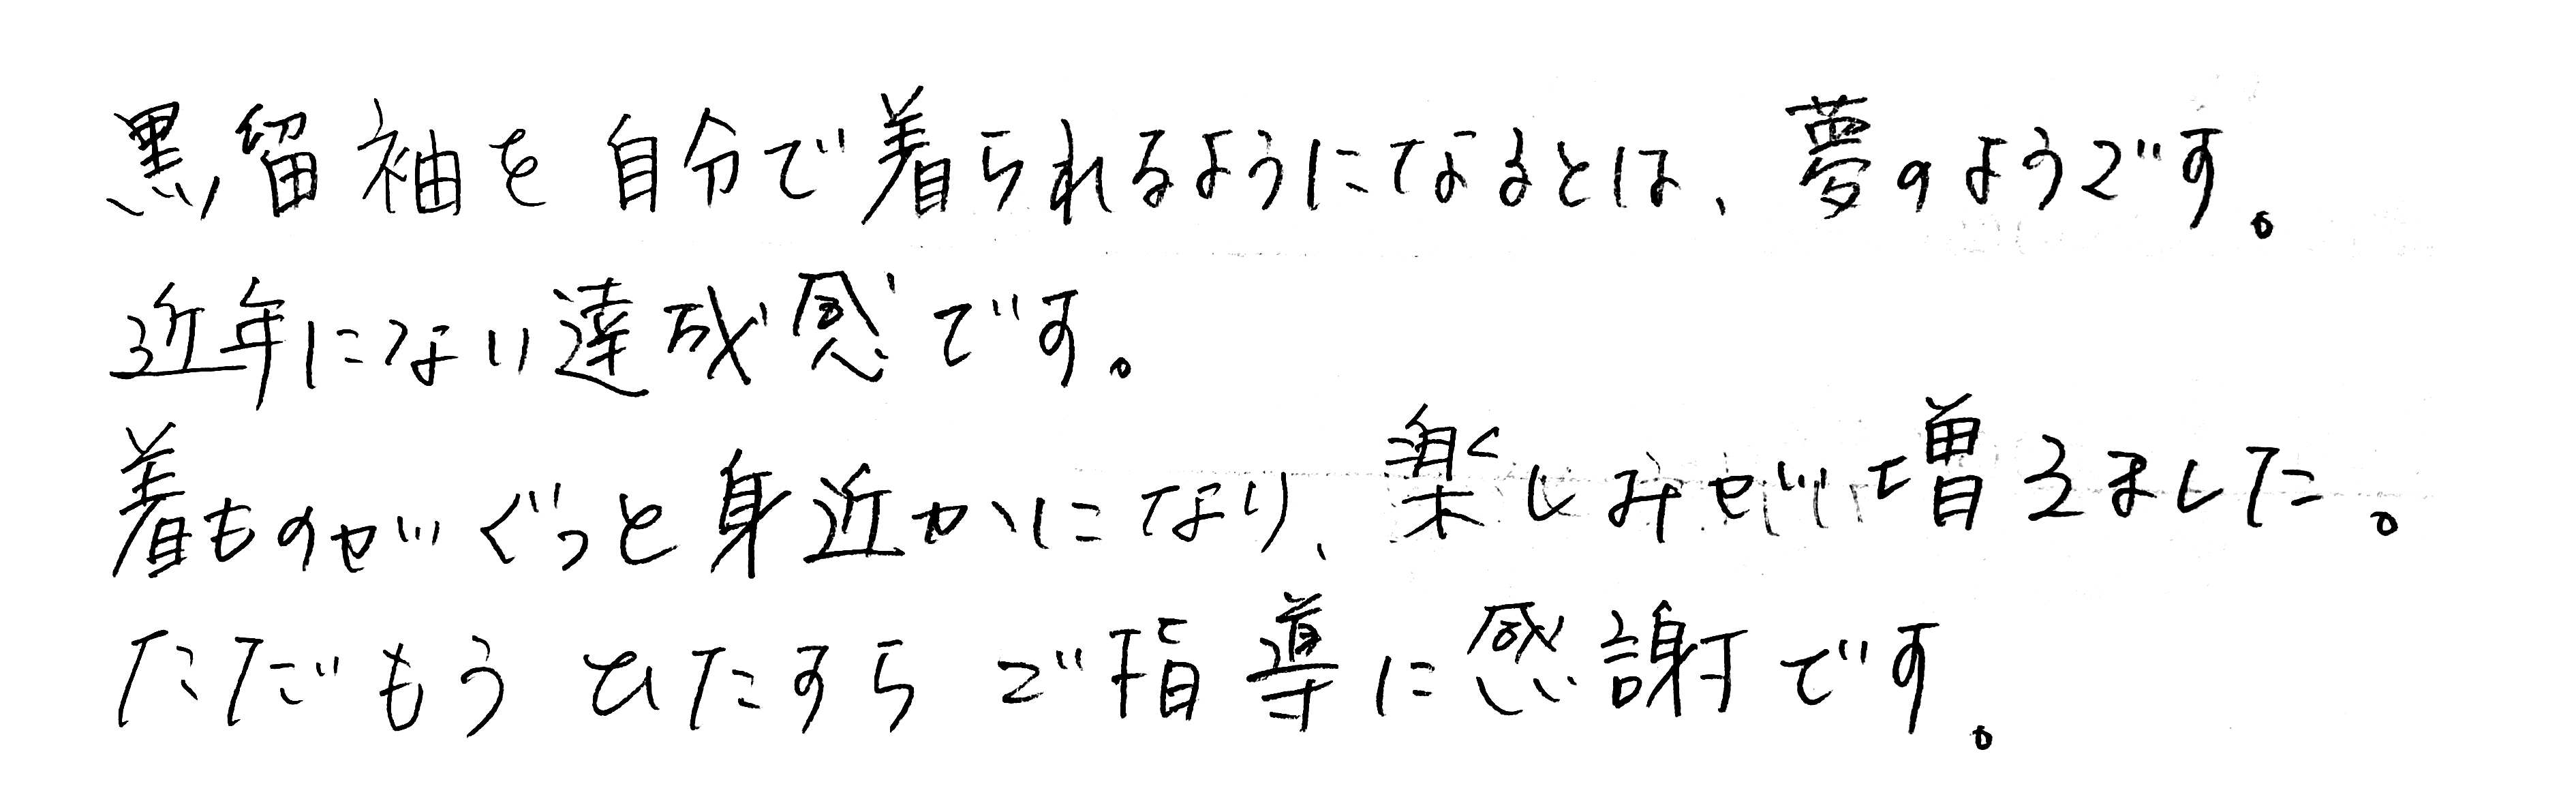 黒留袖を自分で着られるようになるとは、夢のようです。
近年にない達成感です。
着ものがぐっと身近かになり、楽しみが増えました。
ただもうひたすらご指導に感謝です。